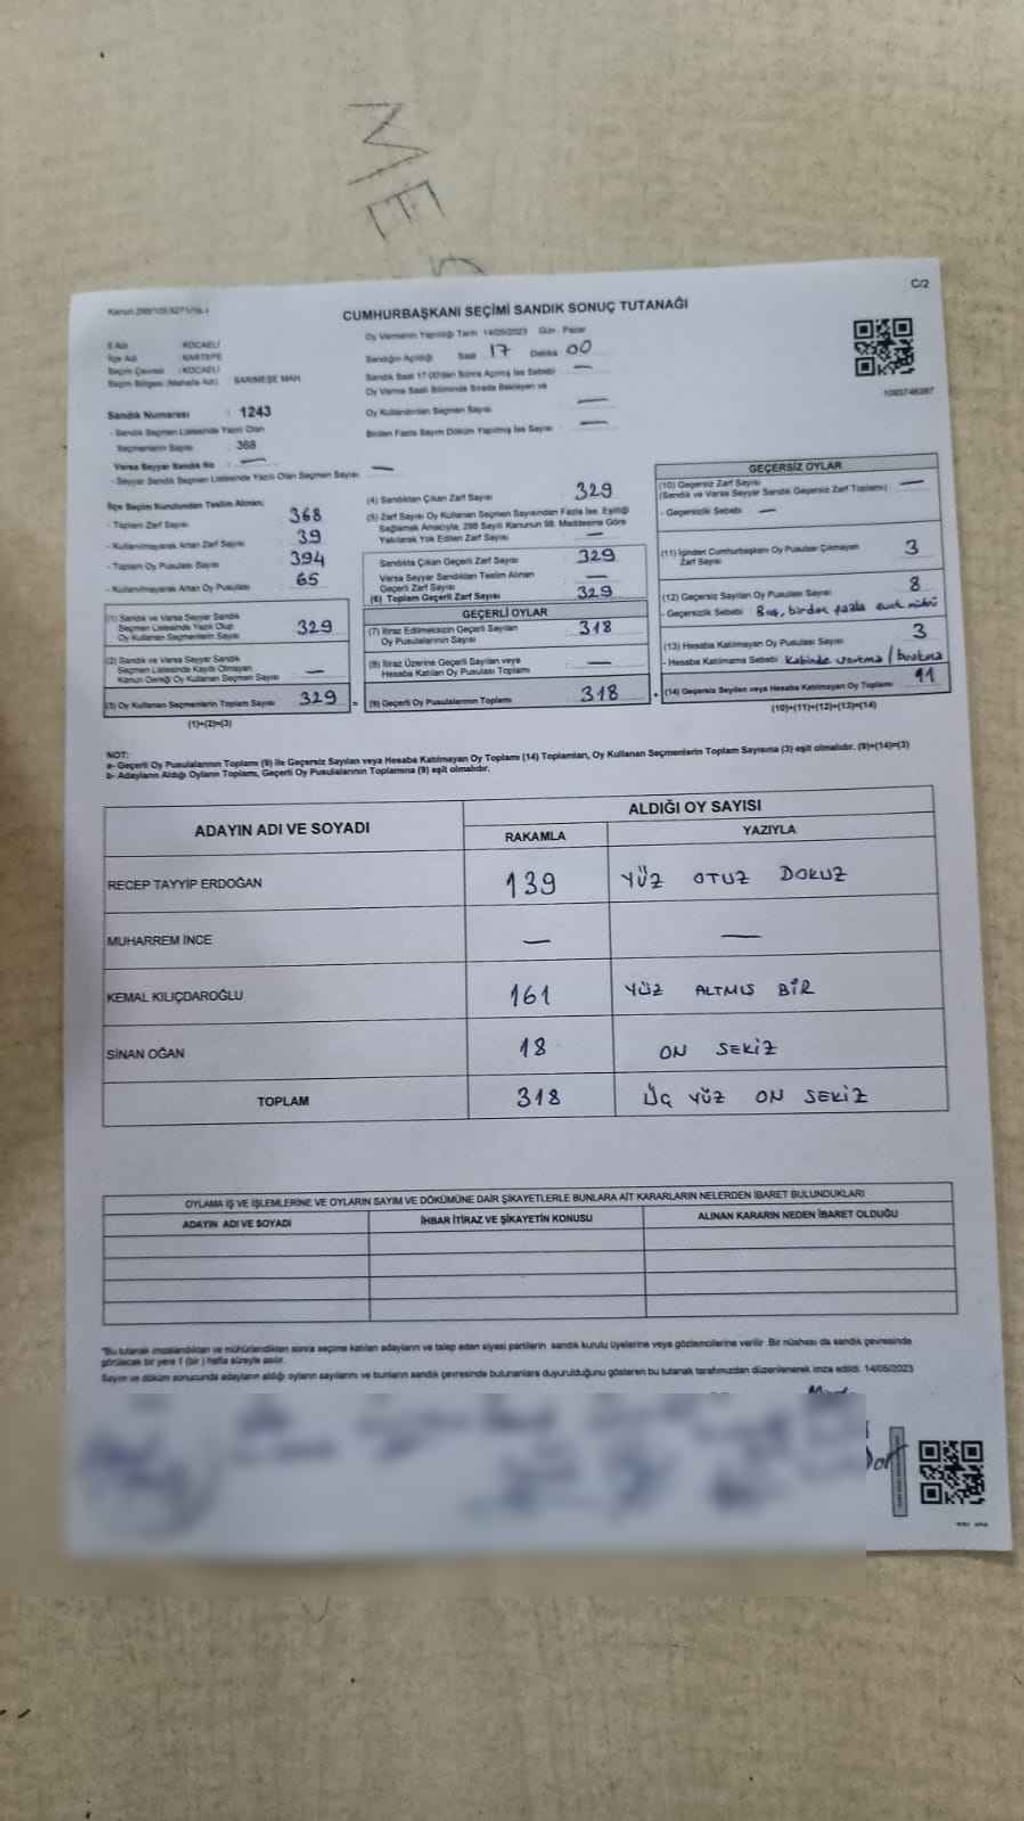 MER
C/2
CUMHURBAŞKANI SEÇİMİ SANDIK SONUÇ TUTANAĞI
İl Adı : KOCAELİ
İlçe Adı : KARTEPE
Seçim Çevresi : KOCAELİ
Seçim Bölgesi (Mahalle Adı) : SARIMEŞE MAH.
Sandık Numarası : 1243
- Sandık Seçmen Listesinde Yazılı Olan
Seçmenlerin Sayısı : 368
Varsa Seyyar Sandık No : —
- Seyyar Sandık Seçmen Listesinde Yazılı Olan Seçmen Sayısı —
Oy Vermenin Yapıldığı Tarih 14/05/2023 Gün : Pazar
Sandığın Açıldığı Saat 17 Dakika 00
Sandık Saat 17:00'den Sonra Açılmış İse Sebebi —
Oy Verme Saati Bitiminde Sırada Bekleyen ve
Oy Kullanan Seçmen Sayısı —
Birden Fazla Sayım Döküm Yapılmış İse Sayısı —
İlçe Seçim Kurulundan Teslim Alınan;
- Toplam Zarf Sayısı 368
- Kullanılmayarak Artan Zarf Sayısı 39
- Toplam Oy Pusulası Sayısı 394
- Kullanılmayarak Artan Oy Pusulası 65
(1) Sandık ve Varsa Seyyar Sandık
Seçmen Listesinde Yazılı Olup
Oy Kullanan Seçmenlerin Sayısı 329
(2) Sandık ve Varsa Seyyar Sandık
Seçmen Listesinde Kayıtlı Olmayan
Kanun Gereği Oy Kullanan Seçmen Sayısı —
(3) Oy Kullanan Seçmenlerin Toplam Sayısı 329
(1)+(2)=(3)
(4) Sandıktan Çıkan Zarf Sayısı 329
(5) Zarf Sayısı Oy Kullanan Seçmen Sayısından Fazla İse, Eşitliği
Sağlamak Amacıyla, 298 Sayılı Kanunun 98. Maddesine Göre
Yakılarak Yok Edilen Zarf Sayısı —
Sandıkta Çıkan Geçerli Zarf Sayısı 329
Varsa Seyyar Sandıktan Teslim Alınan
Geçerli Zarf Sayısı —
(6) Toplam Geçerli Zarf Sayısı 329
GEÇERLİ OYLAR
(7) İtiraz Edilmeksizin Geçerli Sayılan
Oy Pusulalarının Sayısı 318
(8) İtiraz Üzerine Geçerli Sayılan veya
Hesaba Katılan Oy Pusulası Toplamı —
(9) Geçerli Oy Pusulalarının Toplamı 318
GEÇERSİZ OYLAR
(10) Geçersiz Zarf Sayısı —
(Sandık ve Varsa Seyyar Sandık Geçersiz Zarf Toplamı)
- Geçersizlik Sebebi —
(11) İçinden Cumhurbaşkanı Oy Pusulası Çıkmayan
Zarf Sayısı 3
(12) Geçersiz Sayılan Oy Pusulası Sayısı 8
- Geçersizlik Sebebi Boş, birden fazla evet mührü
(13) Hesaba Katılmayan Oy Pusulası Sayısı 3
- Hesaba Katılmama Sebebi Kabinde
(14) Geçersiz Sayılan veya Hesaba Katılmayan Oy Toplamı 11
(10)+(11)+(12)+(13)=(14)
NOT:
a- Geçerli Oy Pusulalarının Toplamı (9) ile Geçersiz Sayılan veya Hesaba Katılmayan Oy Toplamı (14) Toplamları, Oy Kullanan Seçmenlerin Toplam Sayısına (3) eşit olmalıdır. (9)+(14)=(3)
b- Adayların Aldığı Oyların Toplamı, Geçerli Oy Pusulalarının Toplamına (9) eşit olmalıdır.
ADAYIN ADI VE SOYADI ALDIĞI OY SAYISI
RAKAMLA YAZIYLA
RECEP TAYYİP ERDOĞAN 139 YÜZ OTUZ DOKUZ
MUHARREM İNCE — —
KEMAL KILIÇDAROĞLU 161 YÜZ ALTMIŞ BİR
SİNAN OĞAN 18 ON SEKİZ
TOPLAM 318 ÜÇ YÜZ ON SEKİZ
OYLAMA İŞ VE İŞLEMLERİNE VE OYLARIN SAYIM VE DÖKÜMÜNE DAİR ŞİKAYETLERLE BUNLARA AİT KARARLARIN NELERDEN İBARET BULUNDUKLARI
ADAYIN ADI VE SOYADI İHBAR İTİRAZ VE ŞİKAYETİN KONUSU ALINAN KARARIN NEDEN İBARET OLDUĞU
*Bu tutanak imzalandıktan ve mühürlendikten sonra seçime katılan adayların ve talep eden siyasi partilerin sandık kurulu üyelerine veya gözlemcilerine verilir. Bir nüshası da sandık çevresinde
görülecek bir yere 1 (bir ) hafta süreyle asılır.
Sayım ve döküm sonucunda adayların aldığı oyların sayılarını ve bunların sandık çevresinde bulunanlara duyurulduğunu gösteren bu tutanak tarafımızdan düzenlenerek imza edildi. 14/05/2023